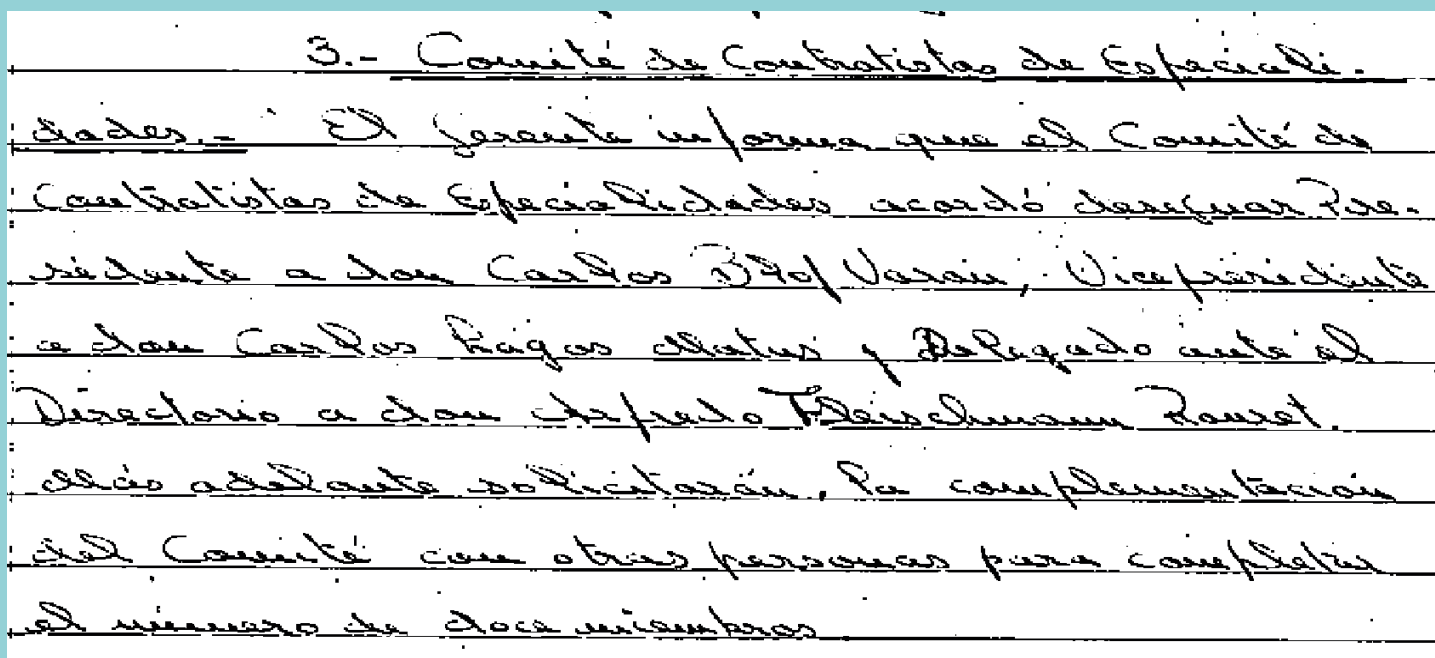 3.- Comité de Contratistas de Especiali-
dades.- El Gerente informa que el Comité de
Contratistas de Especialidades acordó designar Pre-
sidente a don Carlos Varain, Vicepresidente
a don Carlos Lagos Matus y Delegado ante el
Directorio a don Alfredo Fleischmann Rouret.
Más adelante solicitarán, la complementación
del Comité con otras personas para completar
el número de doce miembros